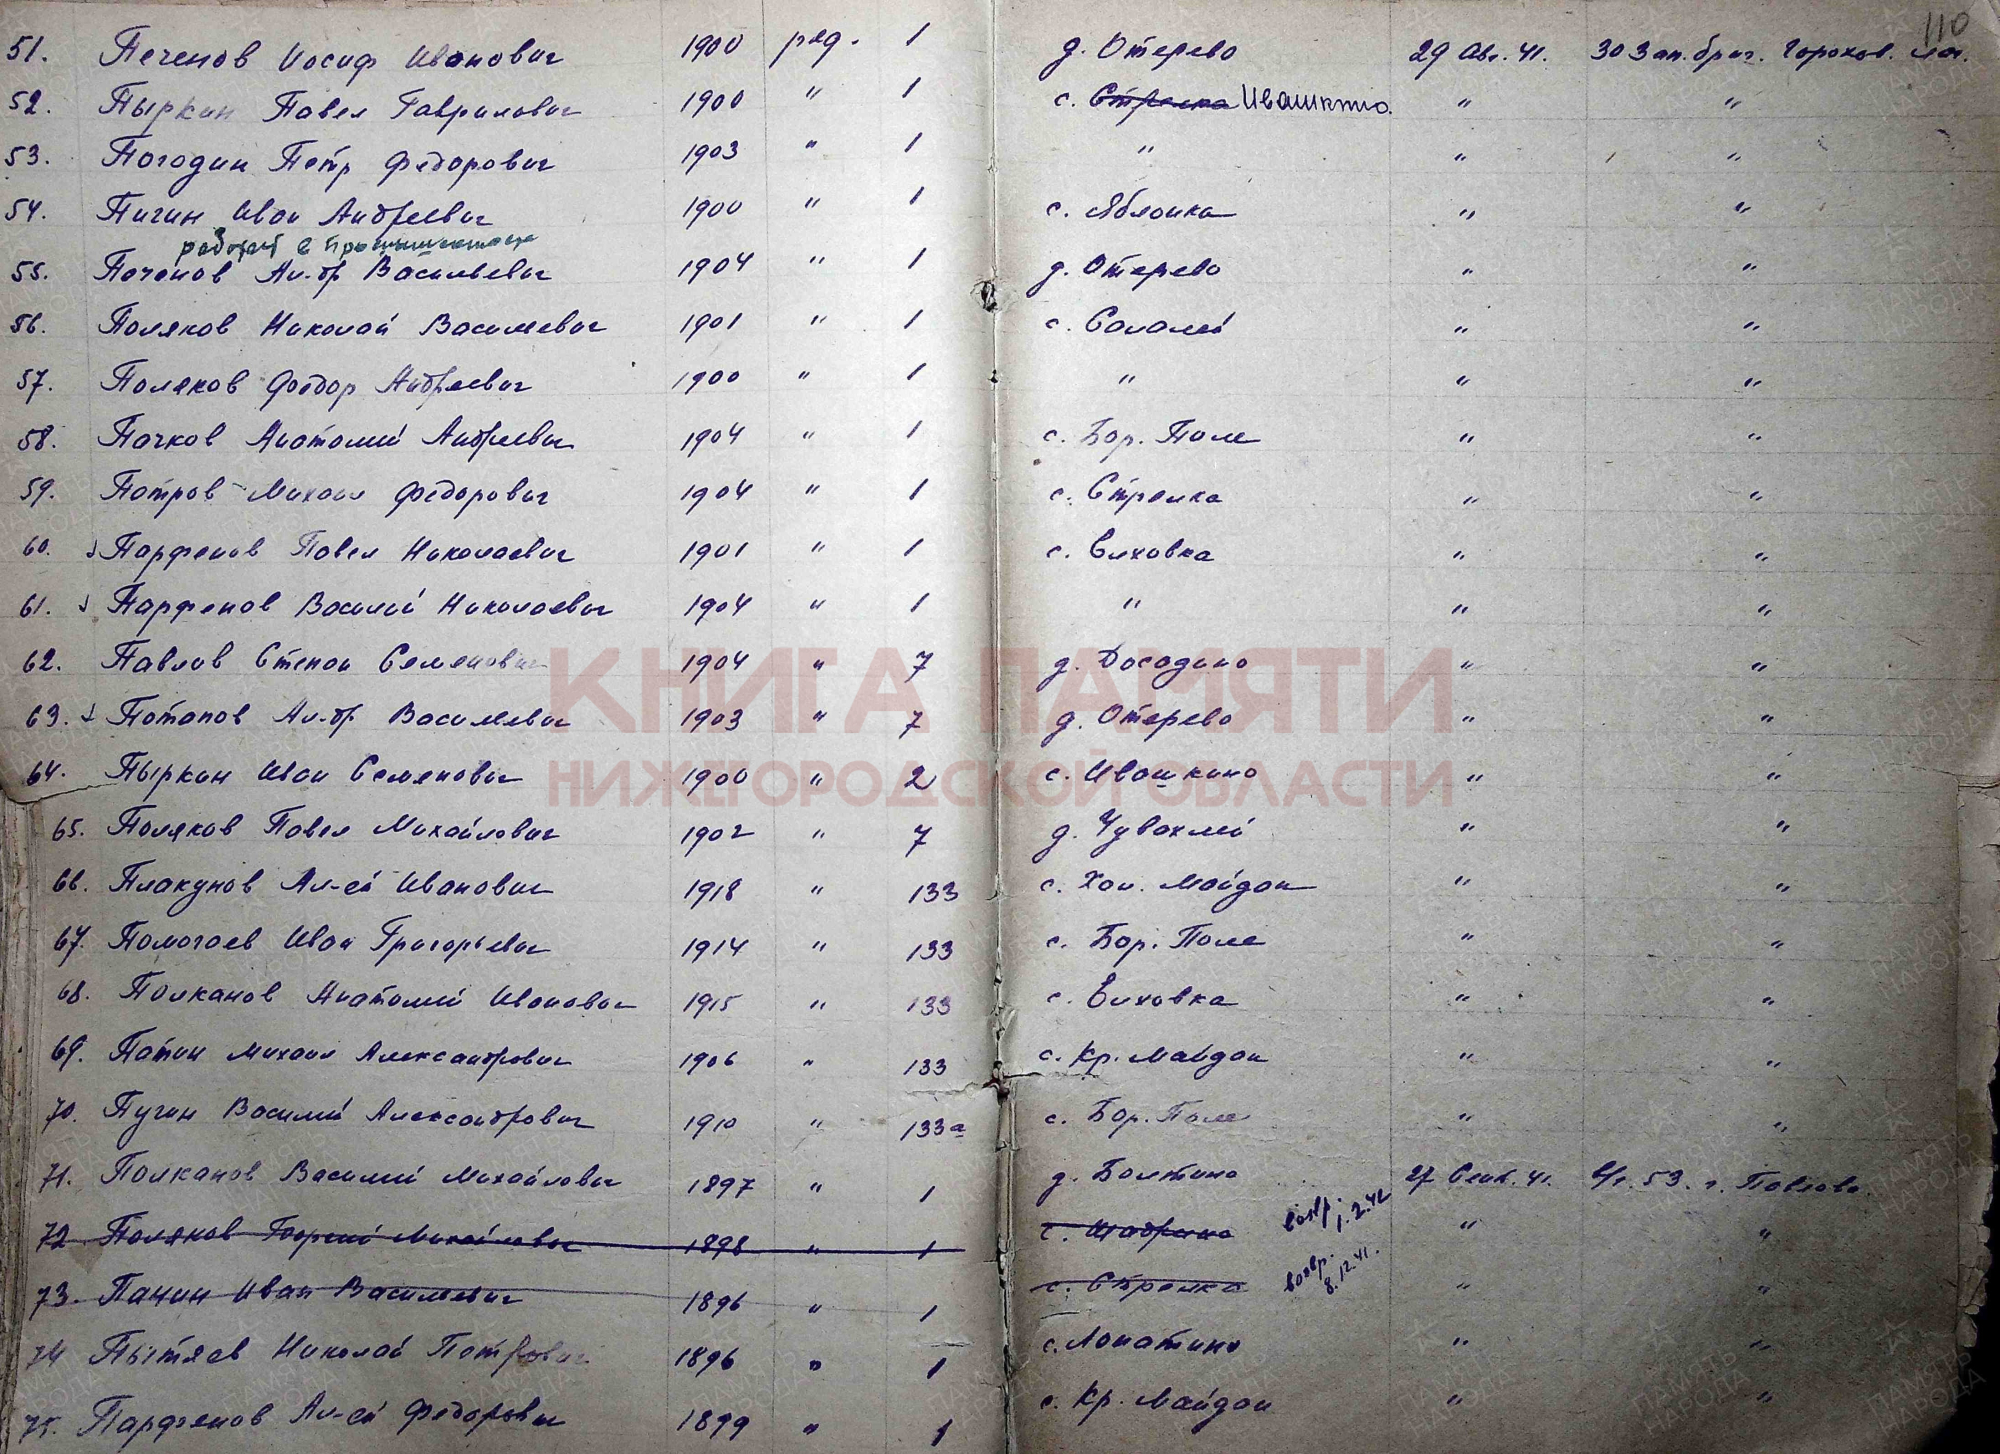 110
51. Печенов Иосиф Иванович 1900 ряд. 1 д. Отерево 29 Авг. 41. 30 Зап. бриг. Горохов. лаг.
52. Пыркин Павел Гаврилович 1900 " 1 с. Стрелка Ивашкино. " "
53. Погодин Петр Федорович 1903 " 1 " " "
54. Пигин Иван Андреевич 1900 " 1 с. Яблонка " "
работает в промышленности
55. Печенов Ал-др Васильевич 1904 " 1 д. Отерево " "
56. Поляков Николай Васильевич 1901 " 1 с. Салалей " "
57. Поляков Федор Андреевич 1900 " 1 " " "
58. Пачков Анатолий Андреевич 1904 " 1 с. Бор. Поле " "
59. Петров Михаил Федорович 1904 " 1 с. Стрелка " "
60. Парфенов Павел Николаевич 1901 " 1 с. Елховка " "
61. Парфенов Василий Николаевич 1904 " 1 " " "
62. Павлов Степан Семенович 1904 " 7 д. Досадино " "
63. Потапов Ал-др Васильевич 1903 " 7 д. Отерево " "
64. Пыркин Иван Семенович 1900 " 2 с. Ивашкино " "
65. Поляков Павел Михайлович 1902 " 7 д. Чувахлей " "
66. Плакунов Ал-ей Иванович 1918 " 133 с. Хол. Майдан " "
67. Помогаев Иван Григорьевич 1914 " 133 с. Бор. Поле " "
68. Полканов Анатолий Иванович 1915 " 133 с. Елховка " "
69. Патин Михаил Александрович 1906 " 133 с. Кр. Майдан " "
70. Пугин Василий Александрович 1910 " 133а с. Бор. Поле " "
71. Полканов Василий Михайлович 1897 " 1 д. Болтино 27 Сент. 41. 53. г. Павлово.
72. Поляков Георгий Михайлович 1898 " 1 с. Шадрино возвр. 1.2.42 " "
73. Панин Иван Васильевич 1896 " 1 с. Стрелка возвр. 8.12.41. " "
74 Пытяев Николай Петрович 1896 " 1 с. Лопатино " "
75. Парфенов Ал-ей Федорович 1899 " 1 с. Кр. Майдан " "
КНИГА ПАМЯТИ
НИЖЕГОРОДСКОЙ ОБЛАСТИ